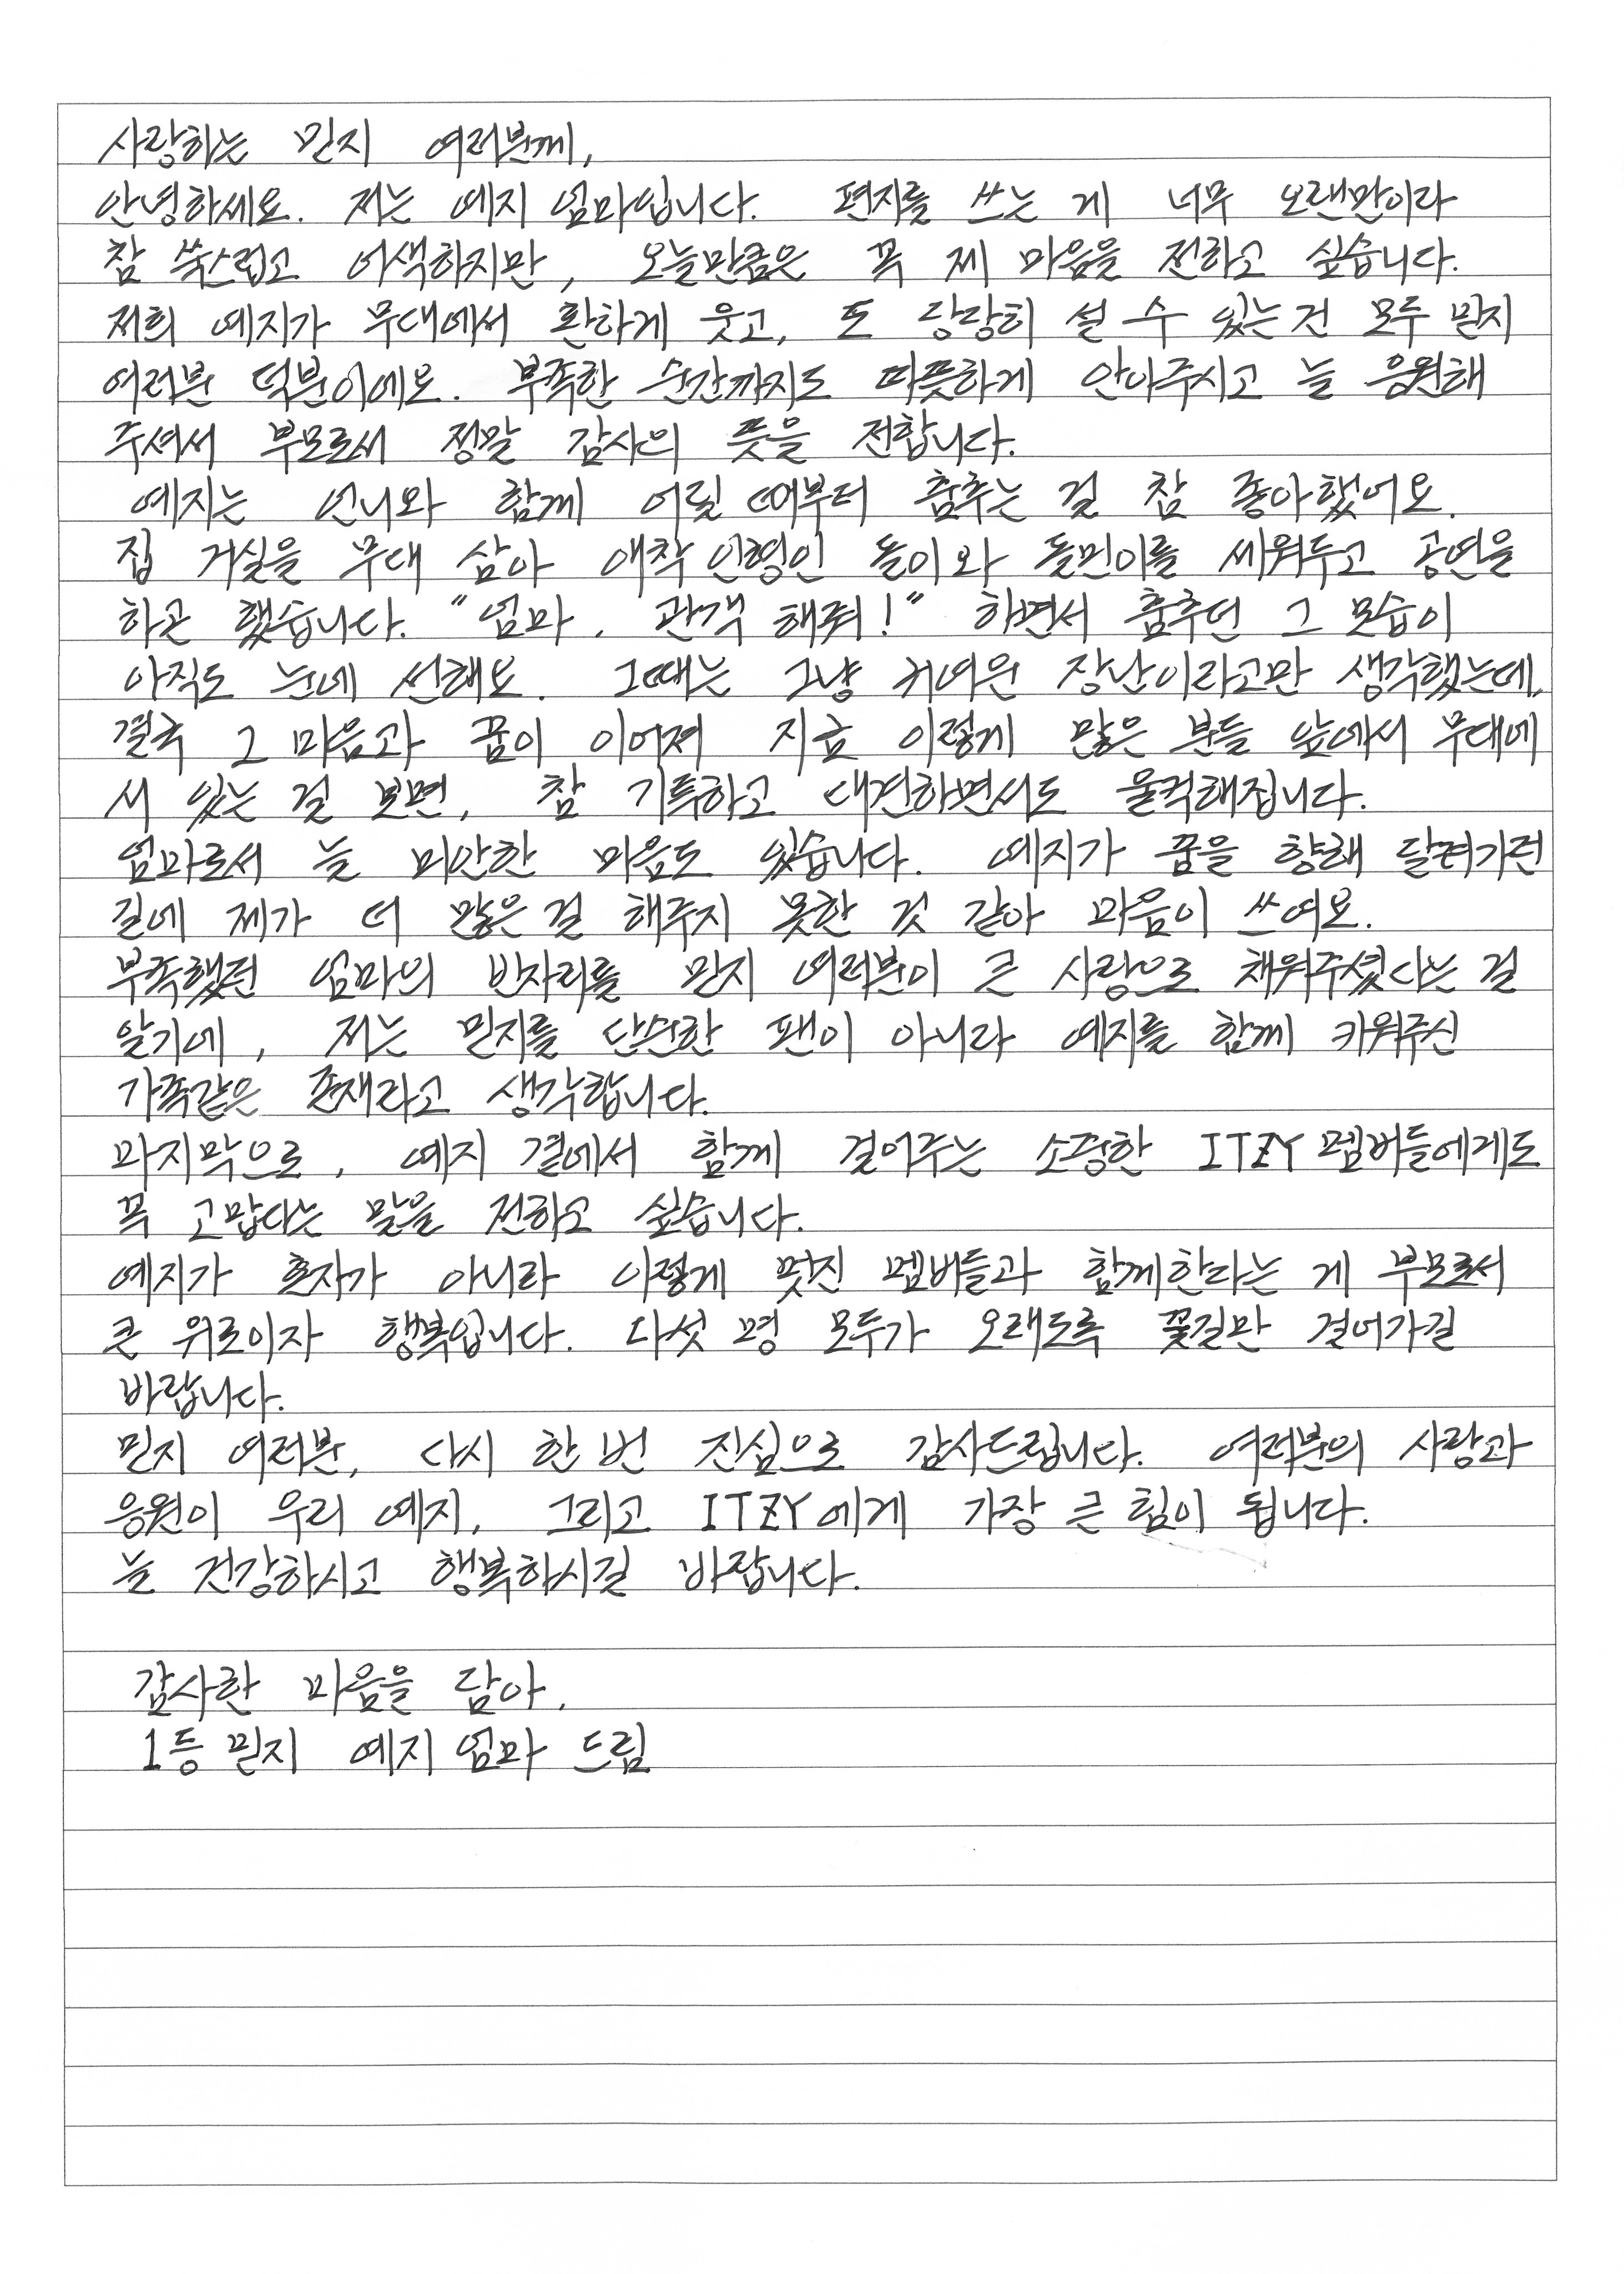 사랑하는 믿지 여러분께,
안녕하세요. 저는 예지 엄마입니다. 편지를 쓰는 게 너무 오랜만이라
참 쑥스럽고 어색하지만, 오늘만큼은 꼭 제 마음을 전하고 싶습니다.
저희 예지가 무대에서 환하게 웃고, 또 당당히 설 수 있는 건 모두 믿지
여러분 덕분이에요. 부족한 순간까지도 따뜻하게 안아주시고 늘 응원해
주셔서 부모로서 정말 감사의 뜻을 전합니다.
예지는 언니와 함께 어릴 때부터 춤추는 걸 참 좋아했어요.
집 거실을 무대 삼아 애착 인형인 돌이와 돌민이를 세워두고 공연을
하곤 했습니다. "엄마, 관객 해줘!" 하면서 춤추던 그 모습이
아직도 눈에 선해요. 그때는 그냥 귀여운 장난이라고만 생각했는데,
결국 그 마음과 꿈이 이어져 지금 이렇게 많은 분들 앞에서 무대에
서 있는 걸 보면, 참 기특하고 대견하면서도 울컥해집니다.
엄마로서 늘 미안한 마음도 있습니다. 예지가 꿈을 향해 달려가던
길에 제가 더 많은 걸 해주지 못한 것 같아 마음이 쓰여요.
부족했던 엄마의 빈자리를 믿지 여러분이 큰 사랑으로 채워주셨다는 걸
알기에, 저는 믿지를 단순한 팬이 아니라 예지를 함께 키워주신
가족같은 존재라고 생각합니다.
마지막으로, 예지 곁에서 함께 걸어주는 소중한 ITZY 멤버들에게도
꼭 고맙다는 말을 전하고 싶습니다.
예지가 혼자가 아니라 이렇게 멋진 멤버들과 함께한다는 게 부모로서
큰 위로이자 행복입니다. 다섯 명 모두가 오래도록 꽃길만 걸어가길
바랍니다.
믿지 여러분, 다시 한 번 진심으로 감사드립니다. 여러분의 사랑과
응원이 우리 예지, 그리고 ITZY에게 가장 큰 힘이 됩니다.
늘 건강하시고 행복하시길 바랍니다.
감사한 마음을 담아,
1등 믿지 예지 엄마 드림